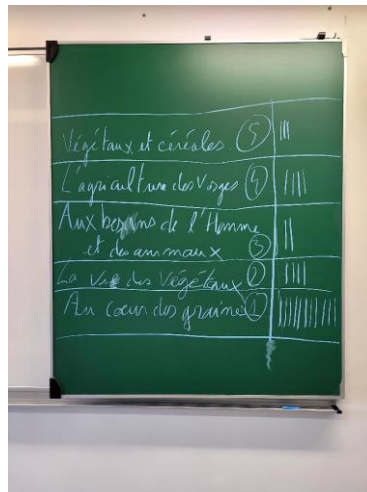 Végétaux et céréales. 5 |||
L'agriculture des Vosges 4 ||||
Aux besoins de l'Homme
et des animaux 3 ||
La vie des Végétaux 2 ||||
Au cœur des graines 1 ||||||||||